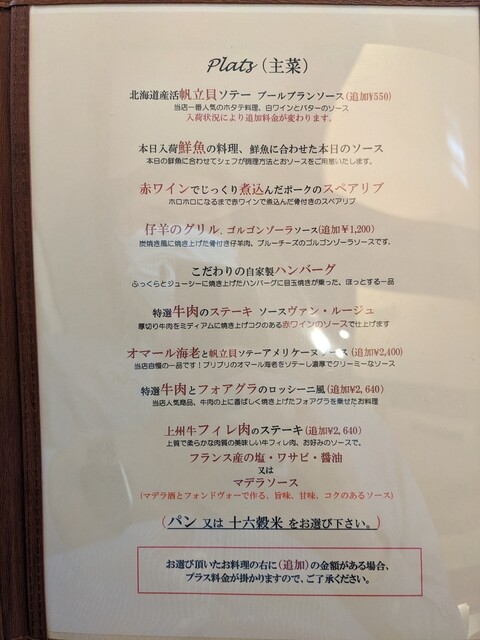 Plats (主菜)
北海道産活帆立貝ソテー ブールブランソース(追加¥550)
当店一番人気のホタテ料理、白ワインとバターのソース
入荷状況により追加料金が変わります。
本日入荷鮮魚の料理、鮮魚に合わせた本日のソース
本日の鮮魚に合わせてシェフが調理方法とおソースをご用意いたします。
赤ワインでじっくり煮込んだポークのスペアリブ
ホロホロになるまで赤ワインで煮込んだ骨付きのスペアリブ
仔羊のグリル、ゴルゴンゾーラソース(追加¥1,200)
炭焼き風に焼き上げた骨付き仔羊肉、ブルーチーズのゴルゴンゾーラソースです。
こだわりの自家製ハンバーグ
ふっくらとジューシーに焼き上げたハンバーグに目玉焼きが乗った、ほっとする一品
特選牛肉のステーキ ソースヴァン・ルージュ
厚切り牛肉をミディアムに焼き上げコクのある赤ワインのソースで仕上げます
オマール海老と帆立貝ソテーアメリケーヌソース(追加¥2,400)
当店自慢の一品です！プリプリのオマール海老をソテーし濃厚でクリーミーなソース
特選牛肉とフォアグラのロッシーニ風(追加¥2,640)
当店人気商品、牛肉の上に香ばしく焼き上げたフォアグラを乗せたお料理
上州牛フィレ肉のステーキ(追加¥2,640)
上質で柔らかな肉質の美味しい牛フィレ肉、お好みのソースで。
フランス産の塩・ワサビ・醤油
又は
マデラソース
(マデラ酒とフォンドヴォーで作る、旨味、甘味、コクのあるソース)
(パン 又は 十六穀米 をお選び下さい。)
お選び頂いたお料理の右に(追加)の金額がある場合、
プラス料金が掛かりますので、ご了承ください。